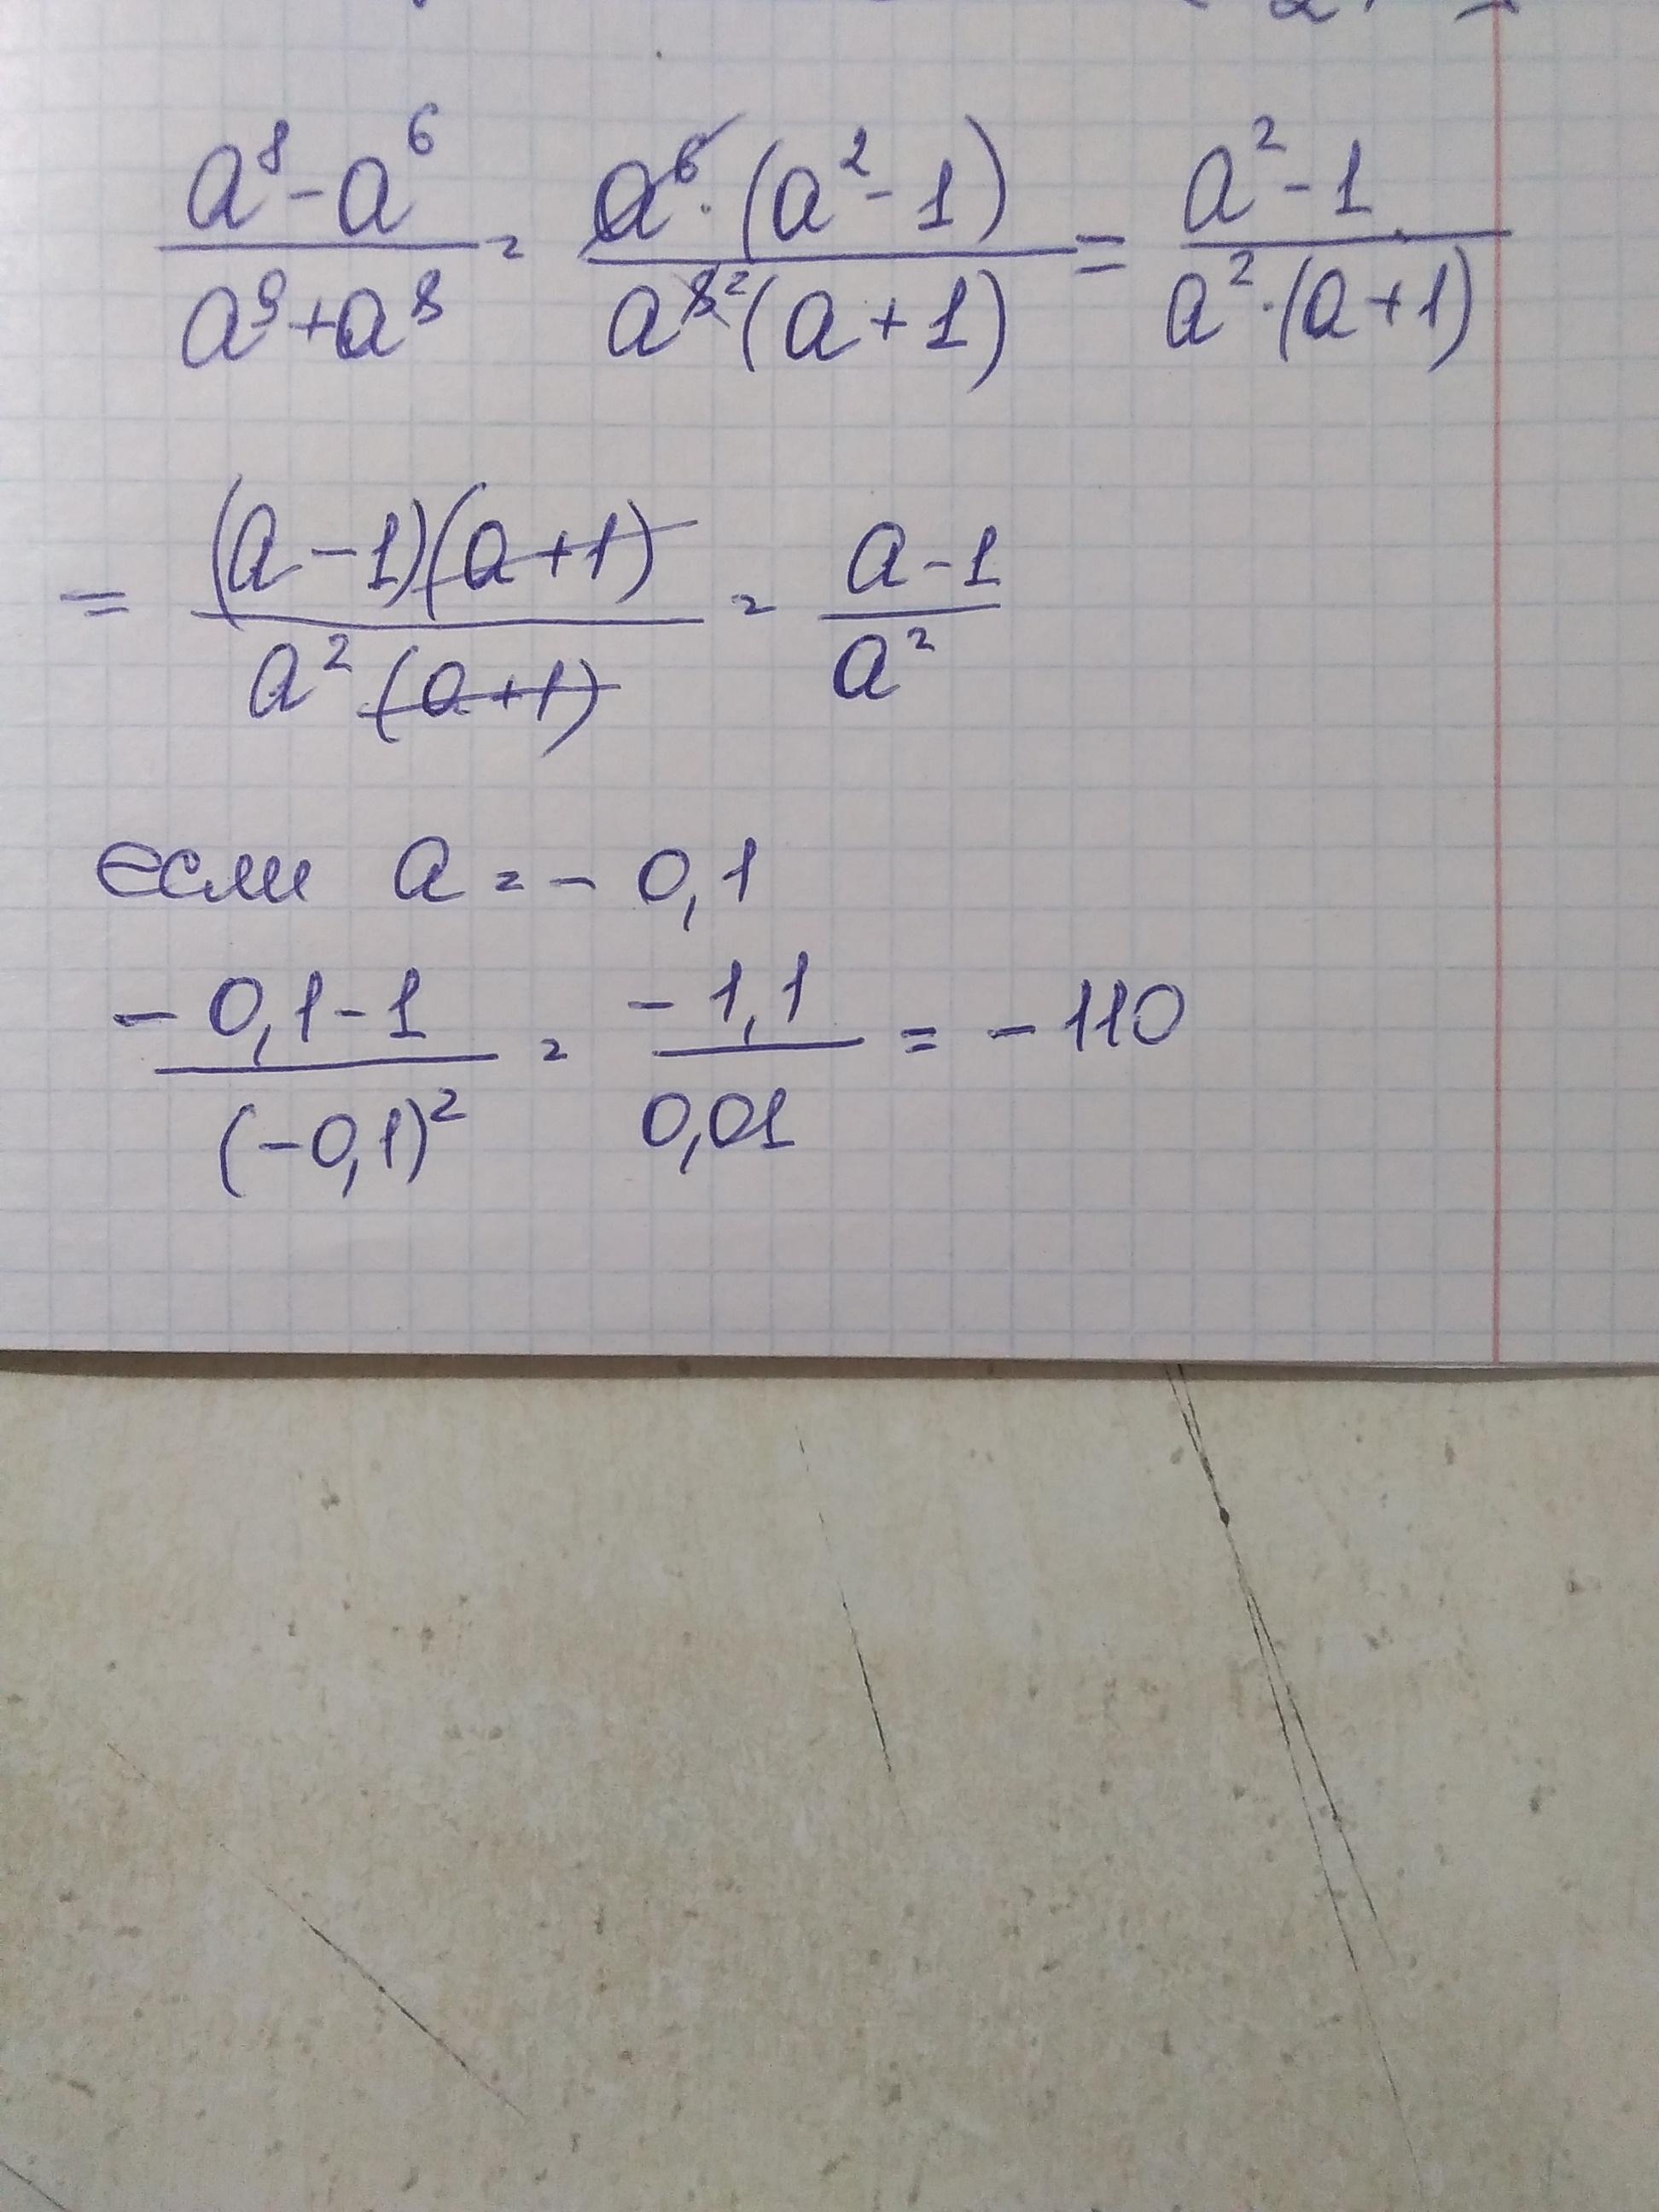 a⁸ - a⁶ / a⁹ + a⁸ = a⁶ · (a² - 1) / a⁸ ² (a + 1) = a² - 1 / a² · (a + 1)
= (a - 1)(a + 1) / a² (a + 1) = a - 1 / a²
если a = - 0,1
- 0,1 - 1 / (-0,1)² = - 1,1 / 0,01 = - 110